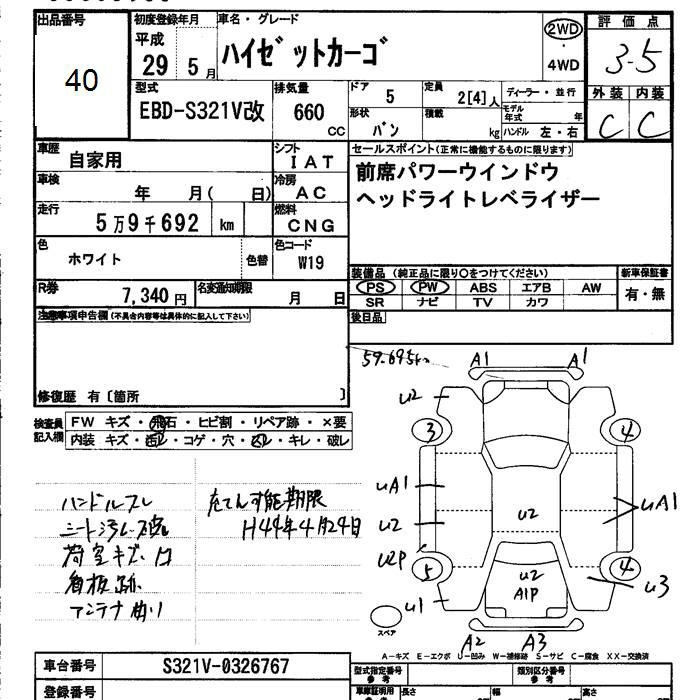 出品番号
40
初度登録年月
平成
29年 5月
車名・グレード
ハイゼットカーゴ
2WD
・
4WD
評価点
3.5
外装 内装
C C
型式
EBD-S321V改
排気量
660
CC
ドア
5
定員
2[4]人
ディーラー・並行
形状
バン
積載
kg
モデル年式
年
ハンドル 左・右
車歴
自家用
シフト
IAT
車検
年 月( 日)
冷房
AC
走行
5万9千692 km
燃料
CNG
色
ホワイト
色替
色コード
W19
R券
7,340円
名変通知期限
月 日
セールスポイント(正常に機能するものに限ります)
前席パワーウインドウ
ヘッドライトレベライザー
装備品(純正品に限り○をつけてください)
新車保証書
PS PW ABS エアB AW
SR ナビ TV カワ
有・無
後日品
注意事項申告欄(不具合内容等は具体的に記入して下さい)
修復歴 有〔箇所 〕
検査員記入欄
FW キズ・飛石・ヒビ割・リペア跡・×要
内装 キズ・汚レ・コゲ・穴・スレ・キレ・破レ
ハンドルスレ
荷室キズ・凹
看板跡
アンテナ曲り
充てん可能期限
H44年4月24日
59.695km
A1 A1
U2
3 4
UA1
U2
U2
UA1
U2P
5 4
U2
A1P
U3
U1
スペア
A2 A3
A-キズ E-エクボ U-凹み W-補修跡 S-サビ C-腐食 XX-交換済
車台番号
S321V-0326767
型式指定番号
参考
類別区分番号
参考
登録番号
車庫証明用
長さ 幅 高さ